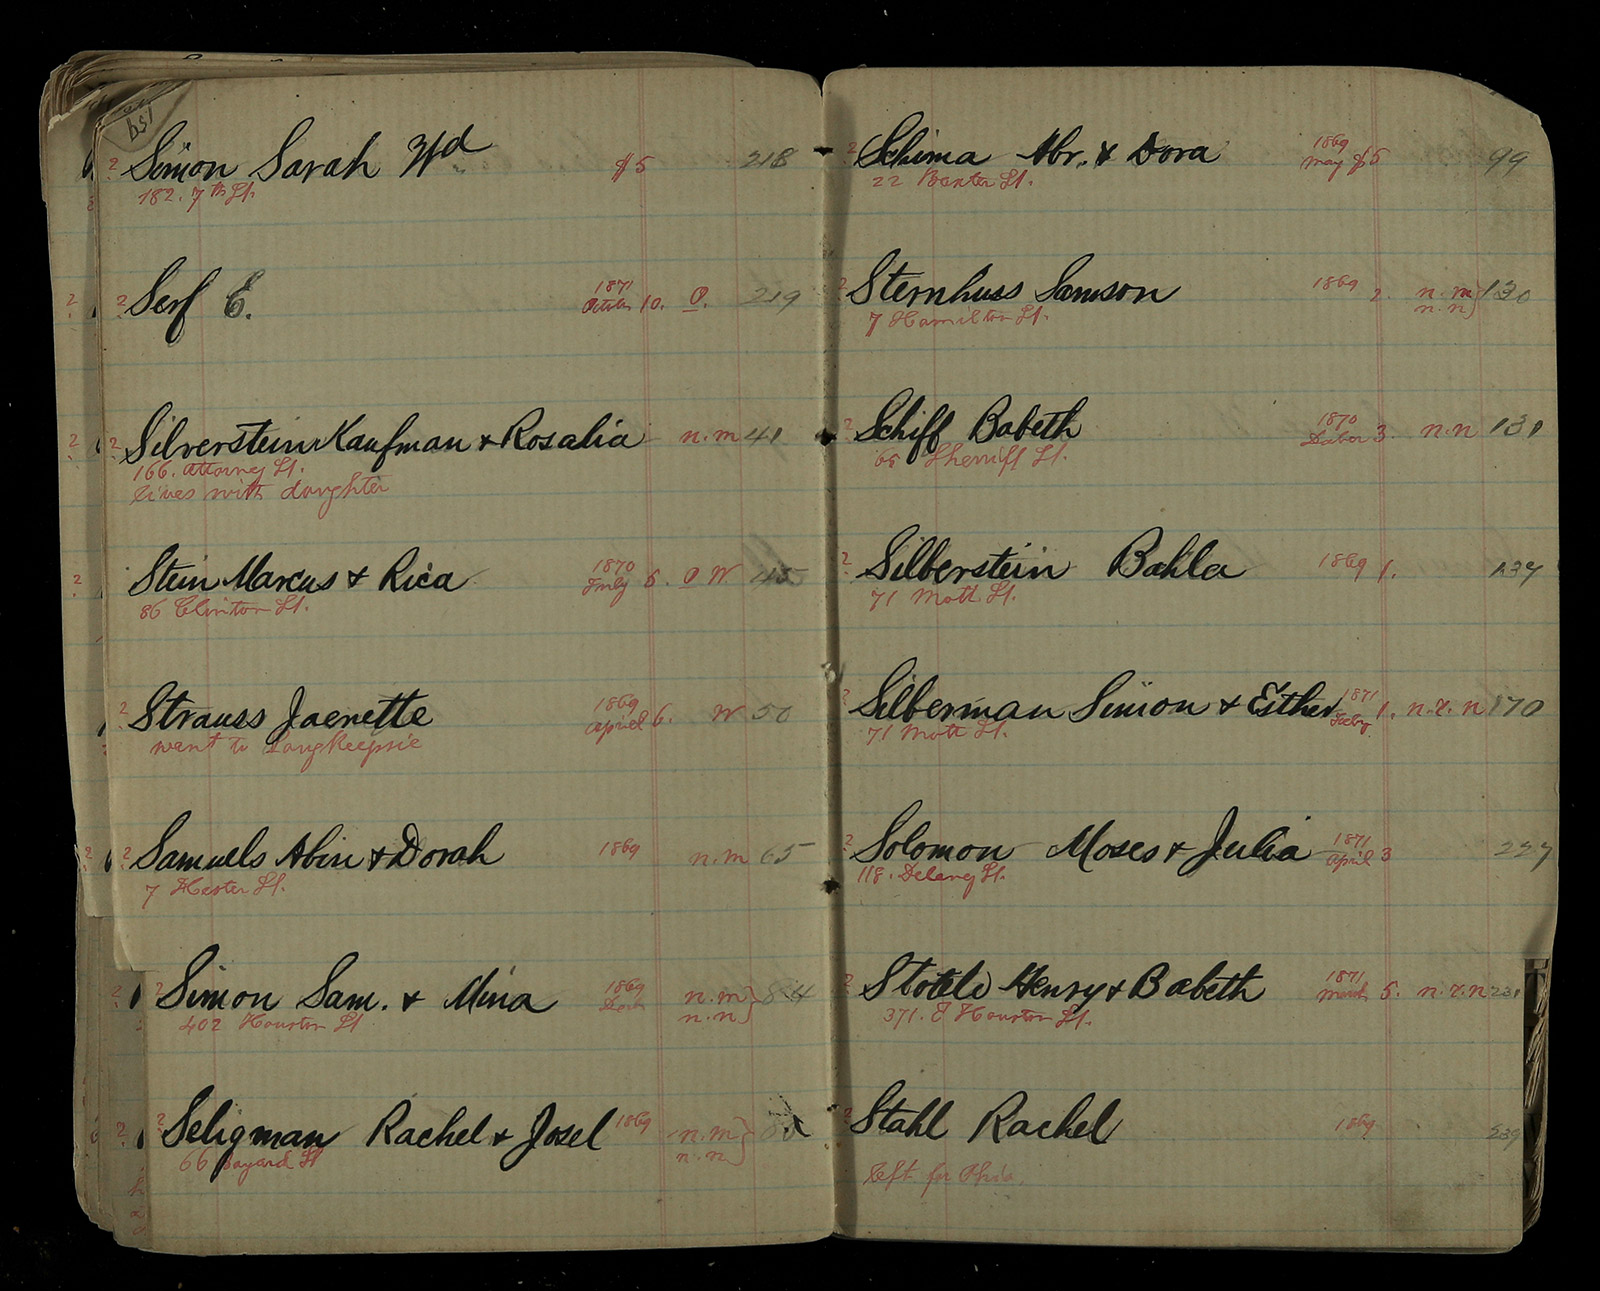 159
2 Simon Sarah Wd $5 218
182. 7th St.
2 Serf E. 1871 October 10. O. 219
2 Silverstein Kaufman & Rosalia n.m 41
166. Attorney St.
lives with daughter
Stein Marcus & Rica 1870 July 5. O W 45
86 Clinton St.
2 Strauss Jaenette 1869 April 6. W 50
went to
2 Samuels Abin & Dorah 1869 n.m 65
7 Hester St.
2 Simon Sam. & Mina 1869 n.m 84
402 Houston St n.n
2 Seligman Rachel & Josel 1869 n.m
66 Bayard St n.n
2 Schima Abr. & Dora 1869 May $5 99
22 Baxter St.
2 Sternhuss Samson 1869 2. n.m 130
7 Hamilton St. n.n
2 Schiff Babeth 1870 3. n.n 131
65 Sherriff St.
2 Silberstein Bahla 1869 1. 137
71 Mott St.
2 Silberman Simon & Esther 1871 1. n.r.n 170
71 Mott St.
2 Solomon Moses & Julia 1871 April 3 227
118. Delancy St.
2 Henry & Babeth 1871 March 5. n.r.n 231
371. E Houston St.
2 Stahl Rachel 1869 239
left for Ohio.